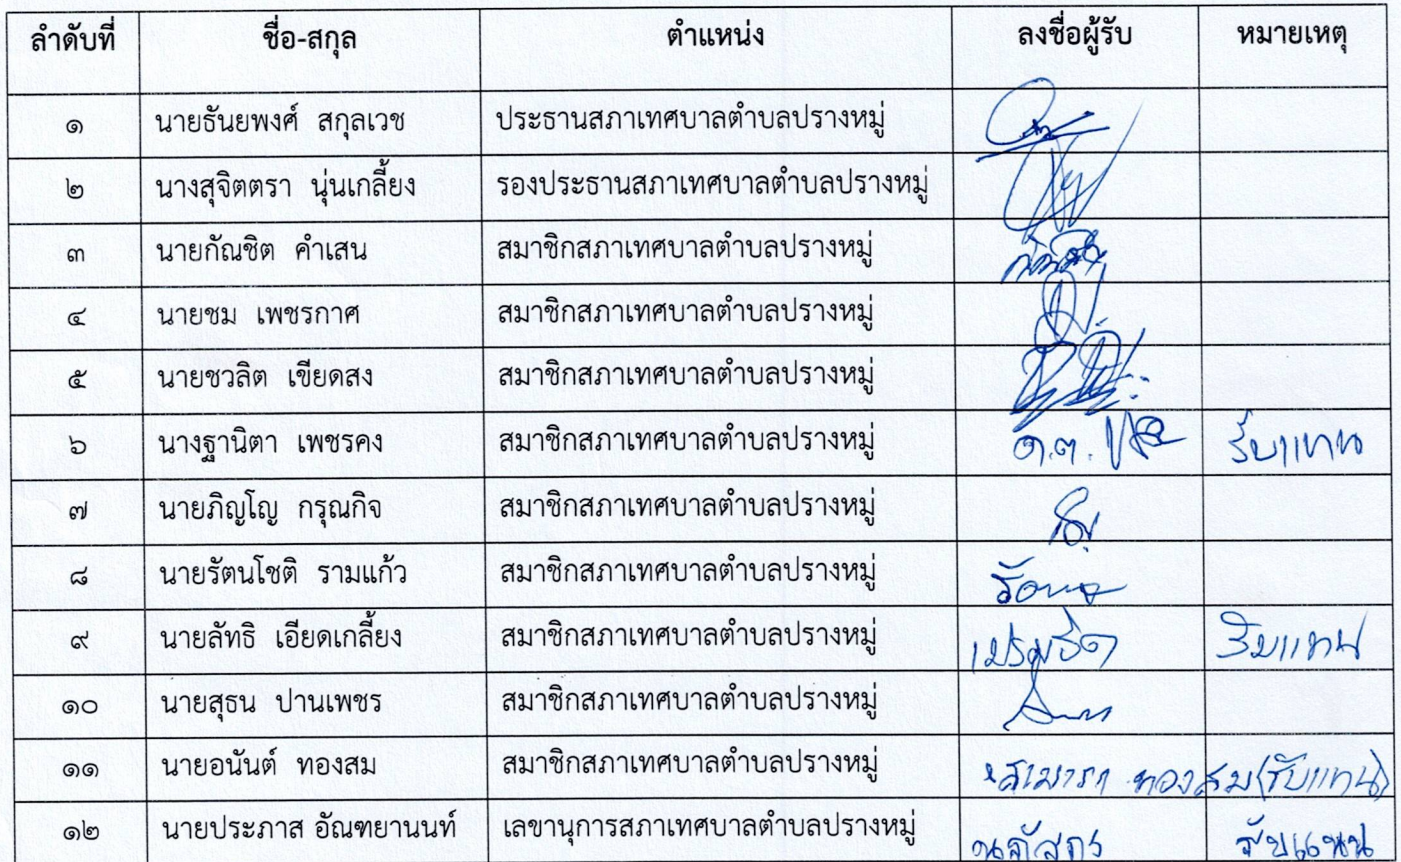 ลำดับที่ ชื่อ-สกุล ตำแหน่ง ลงชื่อผู้รับ หมายเหตุ
๑ นายธันยพงศ์ สกุลเวช ประธานสภาเทศบาลตำบลปรางหมู่
๒ นางสุจิตตรา นุ่นเกลี้ยง รองประธานสภาเทศบาลตำบลปรางหมู่
๓ นายกัณชิต คำเสน สมาชิกสภาเทศบาลตำบลปรางหมู่
๔ นายชม เพชรกาศ สมาชิกสภาเทศบาลตำบลปรางหมู่
๕ นายชวลิต เขียดสง สมาชิกสภาเทศบาลตำบลปรางหมู่
๖ นางฐานิตา เพชรคง สมาชิกสภาเทศบาลตำบลปรางหมู่ ด.ต. รับแทน
๗ นายภิญโญ กรุณกิจ สมาชิกสภาเทศบาลตำบลปรางหมู่
๘ นายรัตนโชติ รามแก้ว สมาชิกสภาเทศบาลตำบลปรางหมู่
๙ นายลัทธิ เอียดเกลี้ยง สมาชิกสภาเทศบาลตำบลปรางหมู่ รับแทน
๑๐ นายสุธน ปานเพชร สมาชิกสภาเทศบาลตำบลปรางหมู่
๑๑ นายอนันต์ ทองสม สมาชิกสภาเทศบาลตำบลปรางหมู่ ทองสม (รับแทน)
๑๒ นายประภาส อัณฑยานนท์ เลขานุการสภาเทศบาลตำบลปรางหมู่ รับแทน